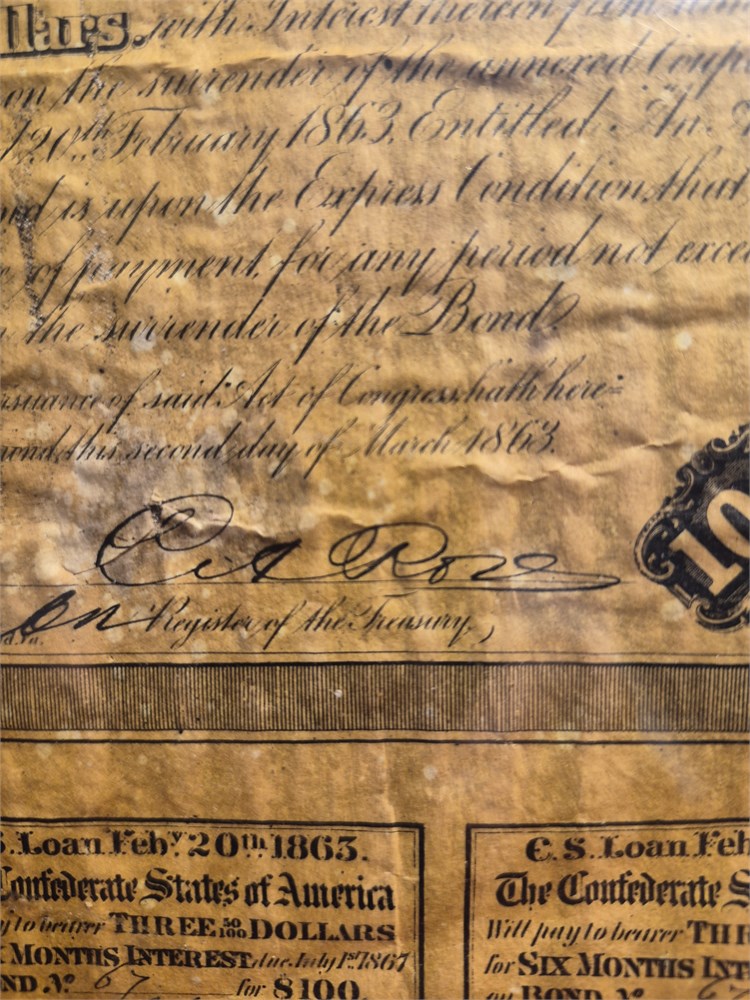 llars. with Interest thereon from
on the surrender of the annexed Coup
20th February 1863. Entitled An
is upon the Express Condition that
of payment for any period not excee
the surrender of the Bond.
rsuance of said Act of Congress hath here=
this second day of March 1863.
10
Register of the Treasury,
S. Loan Feby. 20th 1863.
Confederate States of America
y to bearer THREE 50/100 DOLLARS
X MONTHS INTEREST due July 1st 1867
ND No. 67 for $100.
C. S. Loan Feb
The Confederate S
Will pay to bearer THR
for SIX MONTHS INT
on BOND No 67